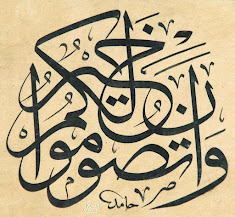 وَأَن تَصُومُوا خَيْرٌ لَكُمْ
حامد